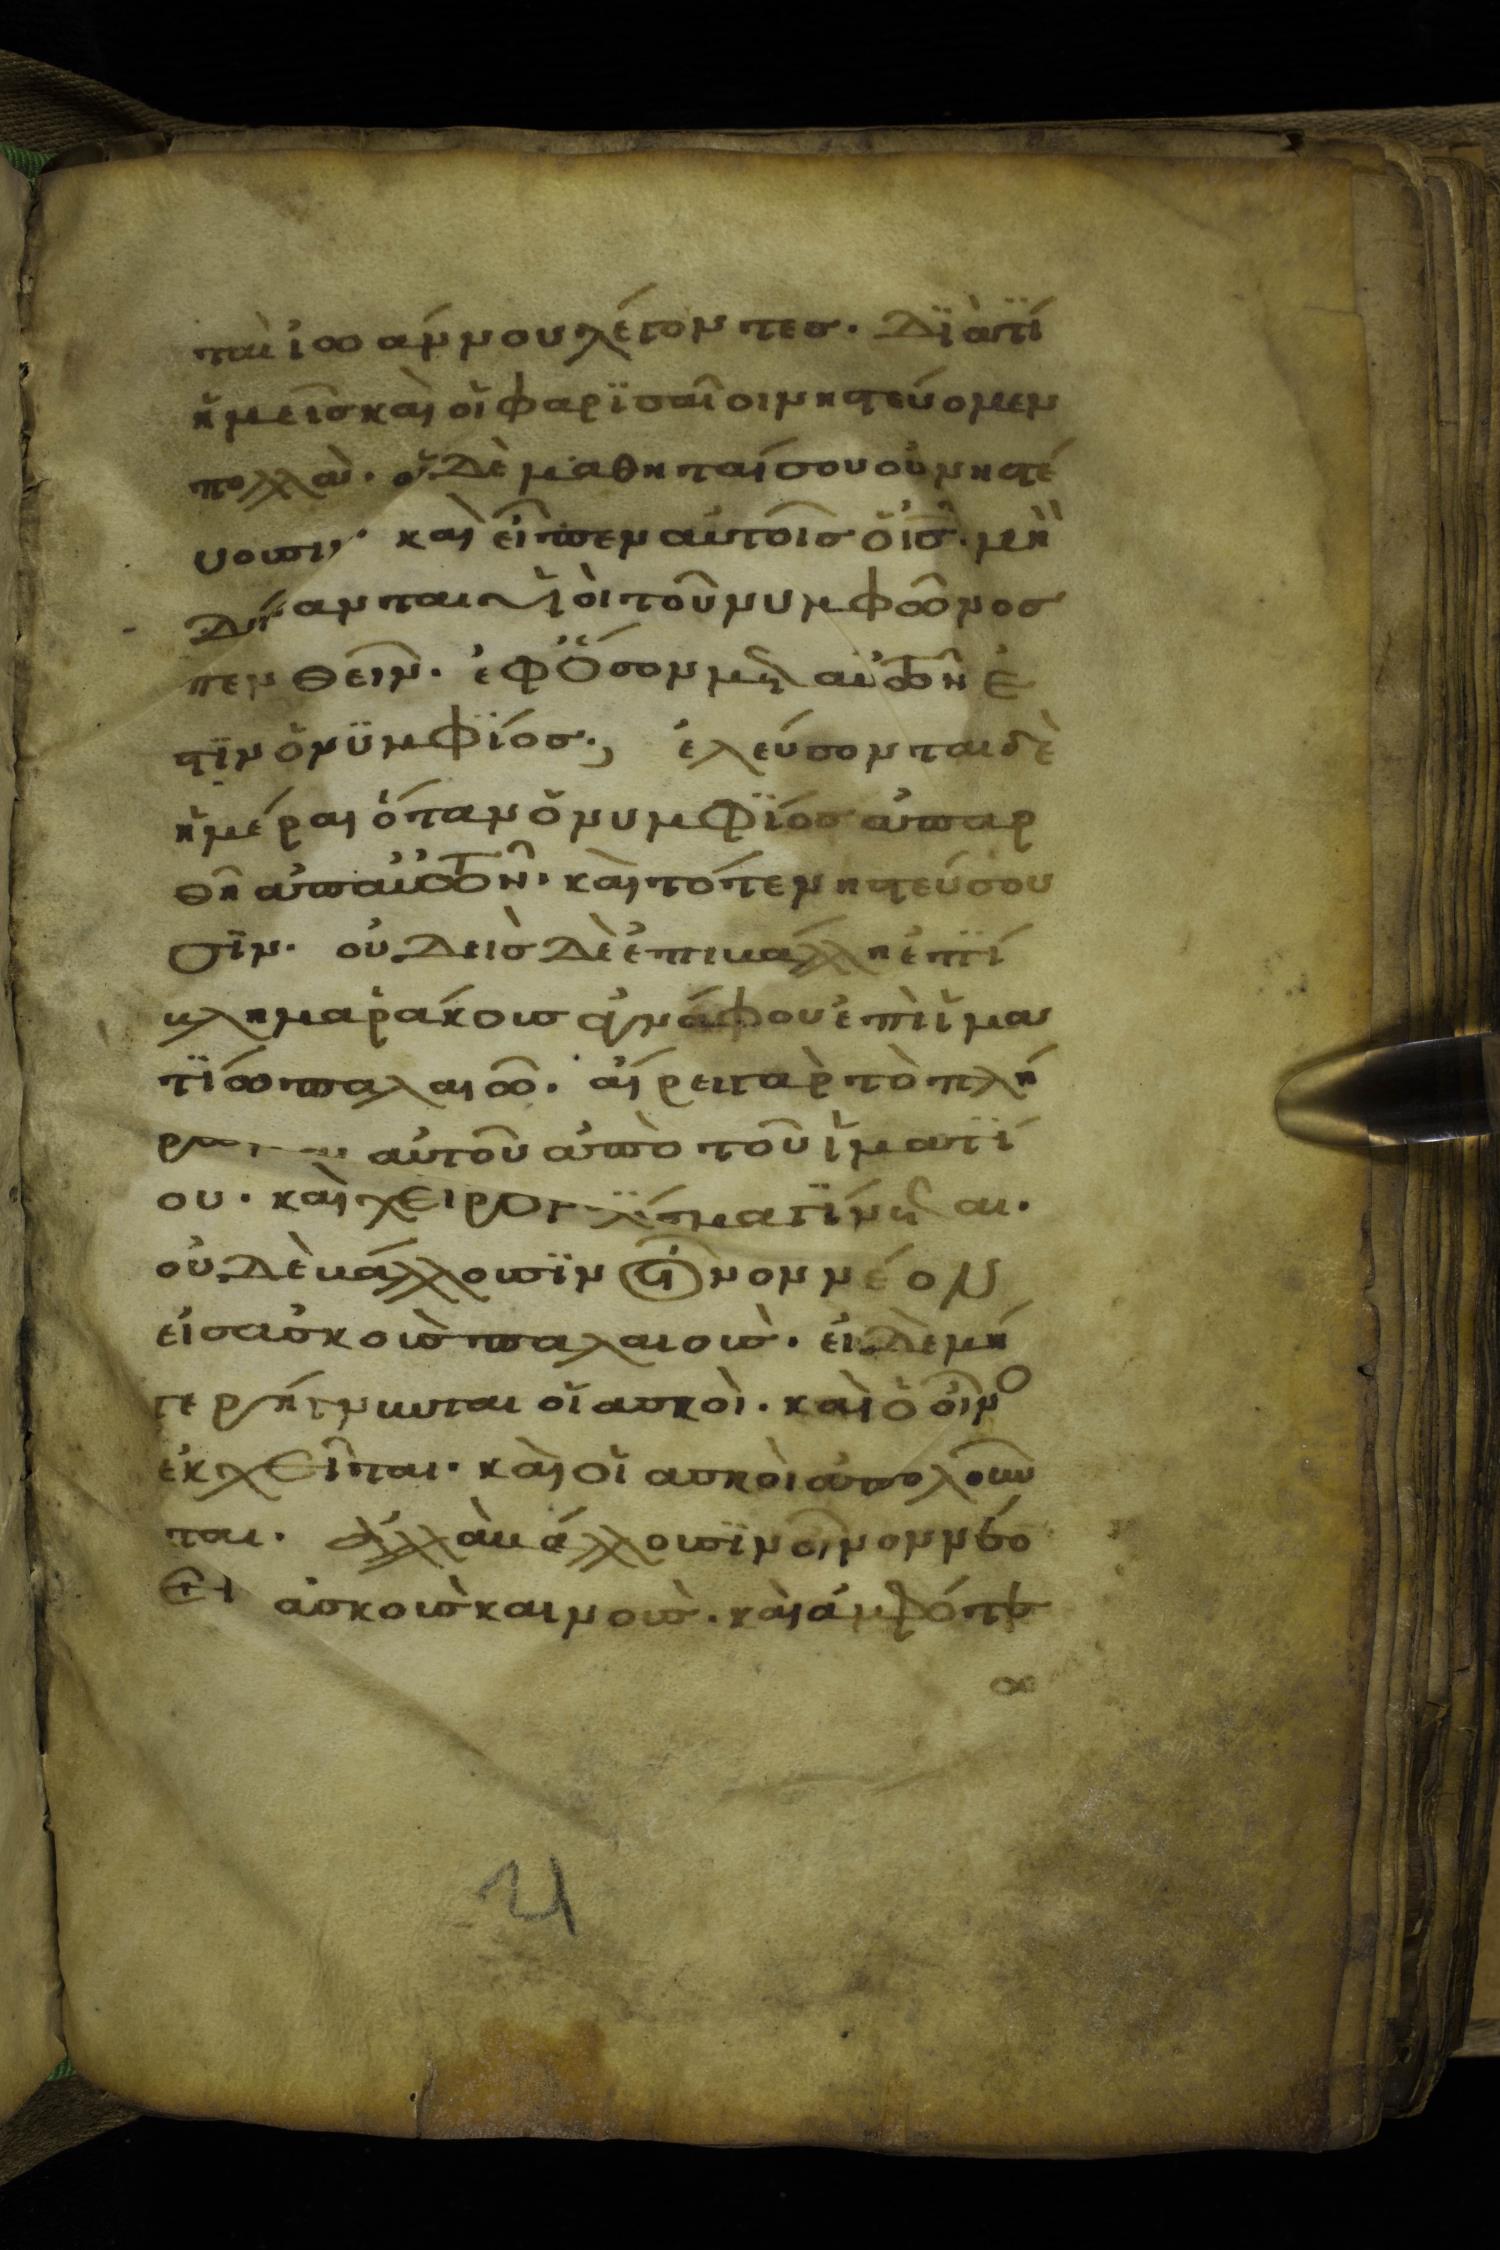 ταὶ ἰωάννου λέγοντες. Δϊατί
ἡμεῖς καὶ οἱ φαρϊσαῖοι νηστεύομεν
πολλὰ. οἱ Δὲ μαθηταί σου οὐ νηστέ
υουσιν. καὶ εἶπεν αὐτοῖς ὁ ἰ̅ς̅. μὴ
Δύνανται υἱοὶ τοῦ νυμφῶνος
πενθεῖν. ἐφ ὅσον μετ αὐτῶν ἐ
στϊν ὁ νϋμφϊός; ἐλεύσονται δὲ
ἡμέραι ὅταν ὁ νυμφϊός ἀπαρ
θῆ ἀπ αὐτῶν. καὶ τότε νηστεύσου
σϊν. οὐδεὶς Δὲ ἐπιβάλλει ἐπϊ
βλημα ῥάκους ἀγνάφου ἐπὶ ἱμα
τϊω παλαιῶ. αἴρει γὰρ τὸ πλή
ρωμα αὐτοῦ ἀπὸ τοῦ ἱματϊ
ου. καὶ χεῖρον σχϊσμα γϊνεται.
οὐδὲ βάλλουσϊν οἶνον νέον
εἰς ἀσκοὺς παλαιοὺς. εἰ Δὲ μή
γε ῥήγνυνται οἱ ἀσκοὶ. καὶ ὁ οἶνο
ἐκχεῖται. καὶ οἱ ἀσκοὶ ἀπολοῦν
ται. ἀλλὰ βάλλουσϊν οἶνον νέο
εἰ ἀσκοὺς καινοὺς. καὶ ἀμφότε